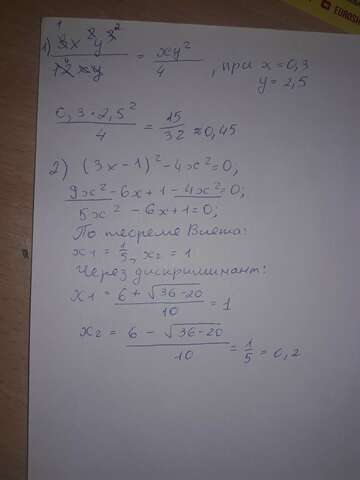 1) 3x²y³ / 12xy = xy²/4 , при x=0,3
y=2,5
0,3·2,5² / 4 = 15/32 ≈0,45
2) (3x-1)²-4x²=0,
9x²-6x+1-4x²=0;
5x²-6x+1=0;
По теореме Виета:
x1=1/5, x2=1
Через дискриминант:
x1= 6+√36-20 / 10 = 1
x2= 6-√36-20 / 10 = 1/5 = 0,2